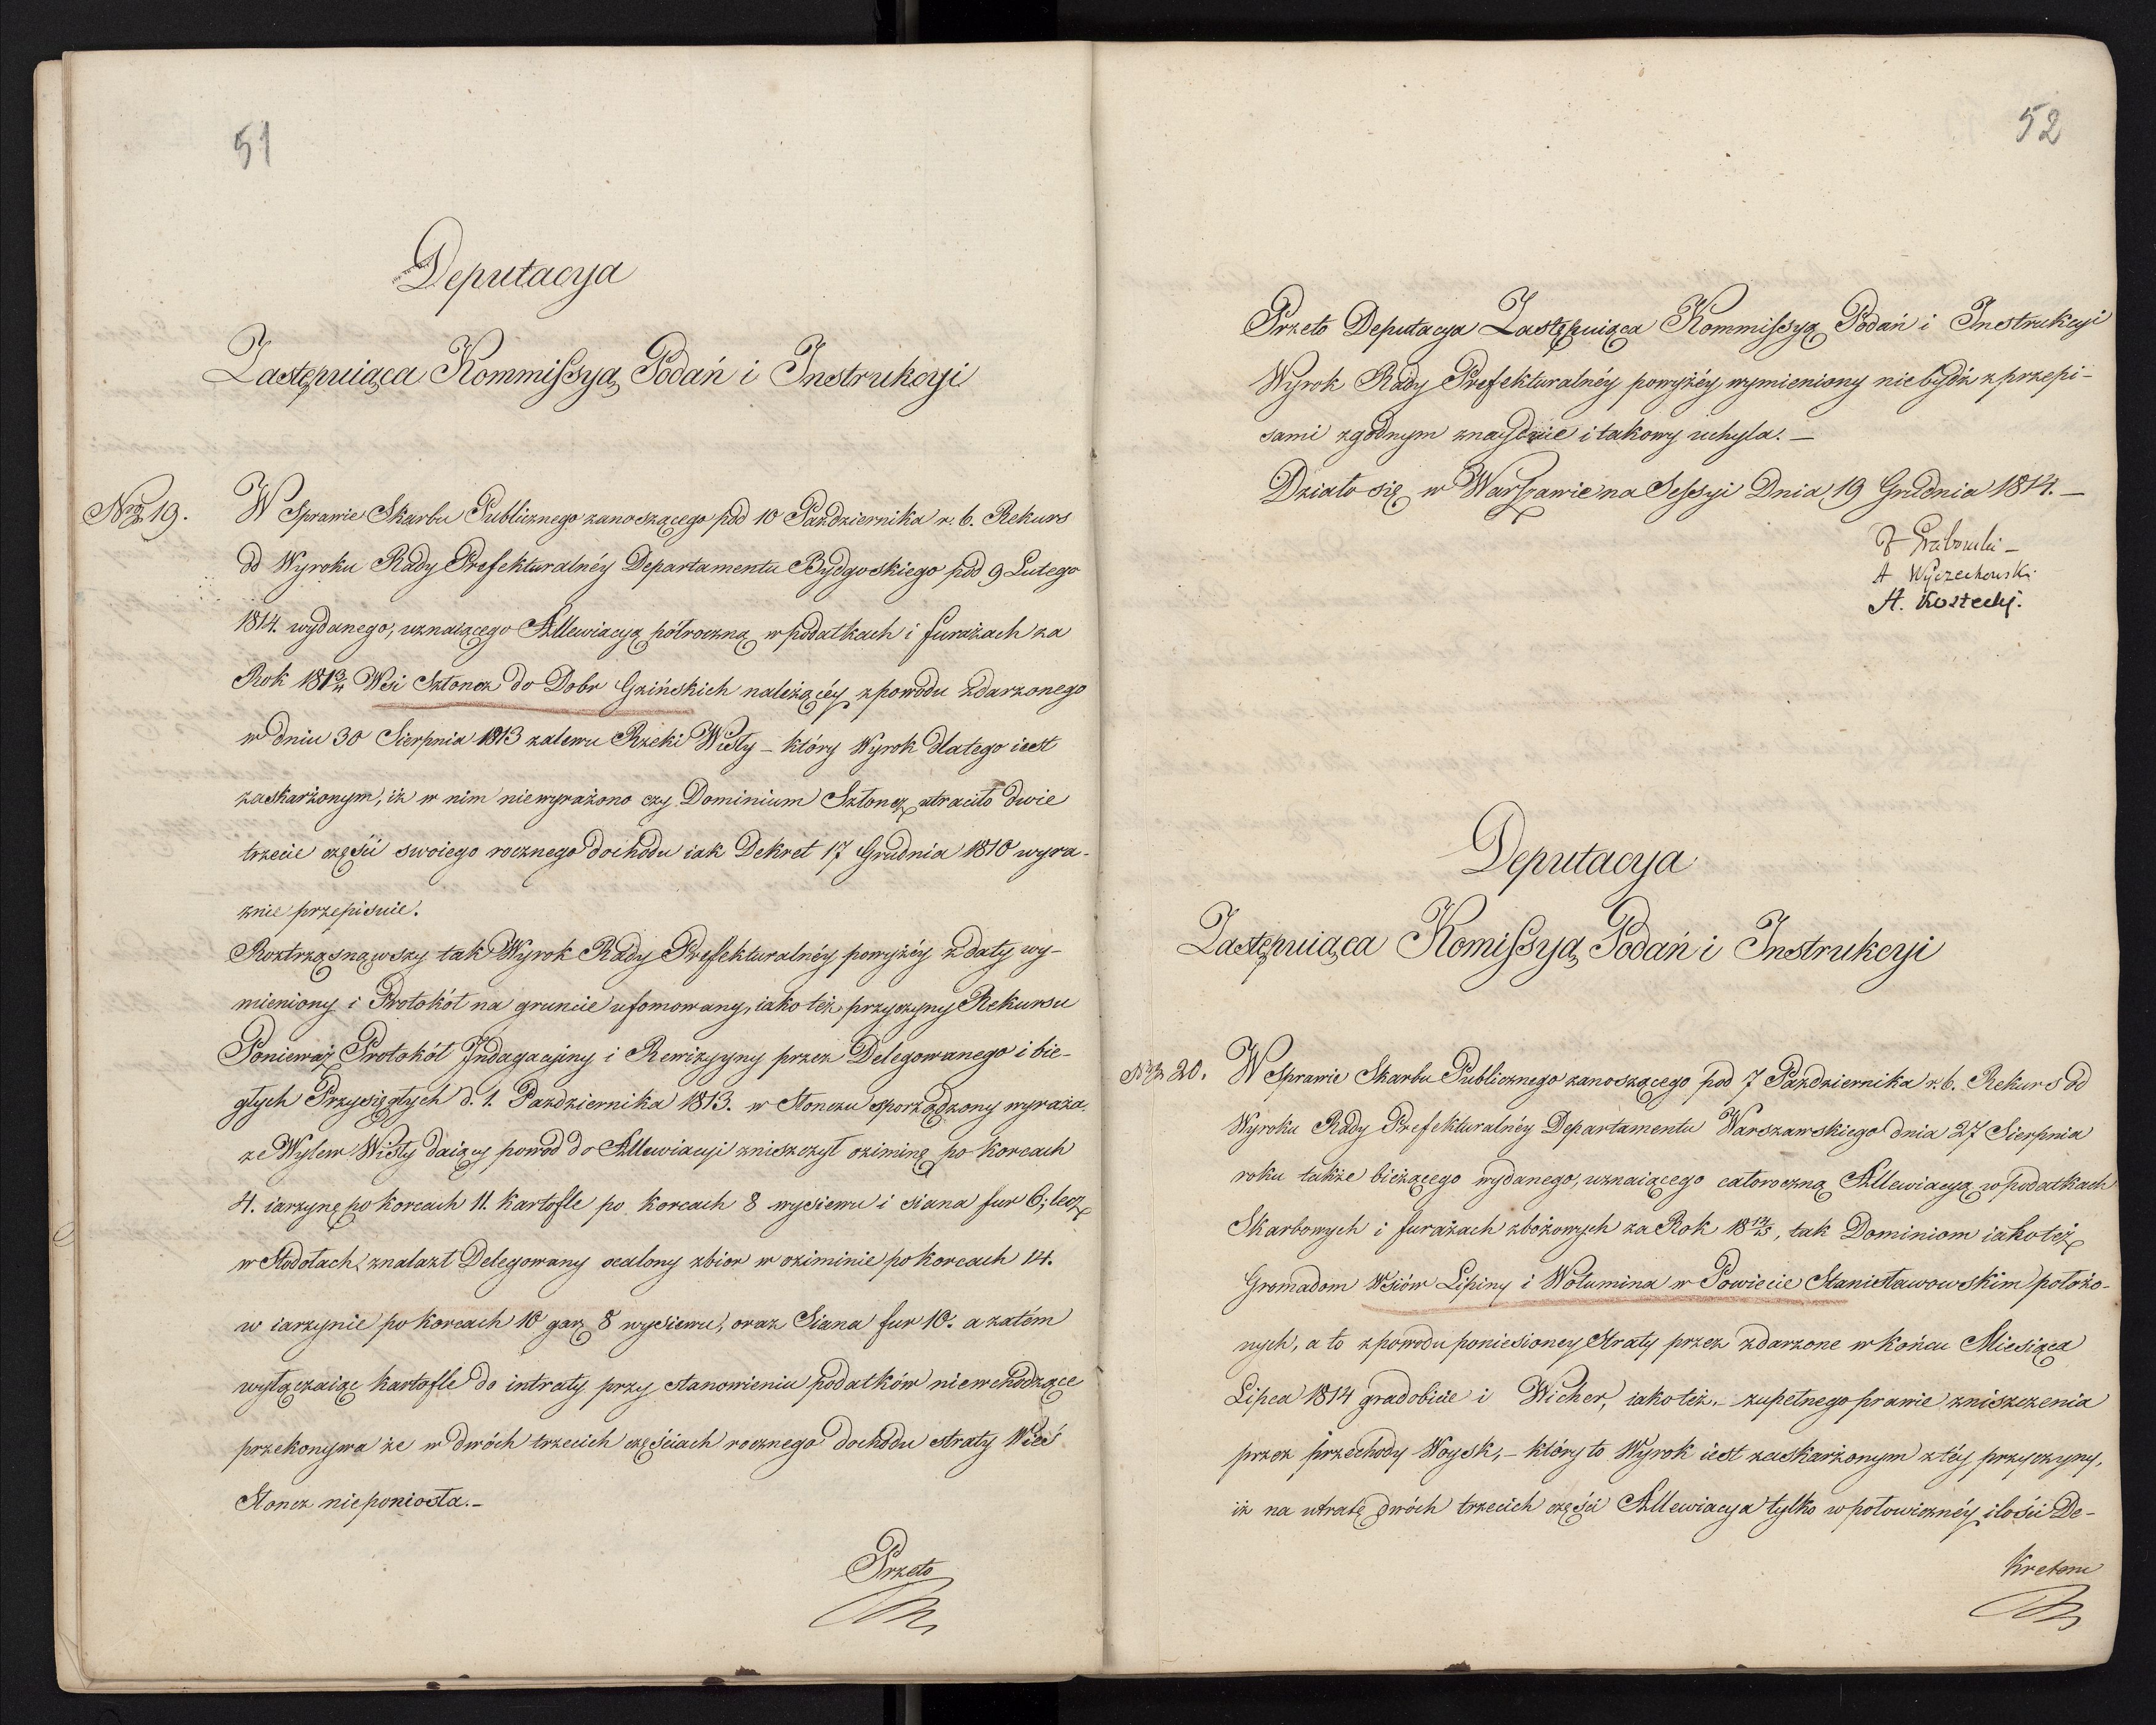 51
Deputacya
Zastępuiąca Kommissyą Podań i Instrukcyi
Nro 19. W Sprawie Skarbu Publicznego zanoszącego pod 10 Października r. b. Rekurs
od Wyroku Rady Prefekturalnéy Departamentu Bydgoskiego pod 9 Lutego
1814. wydanego, uznaiącego Allewiacyą półroczną w podatkach i furażach za
Rok 1813/4 Wsi Sztoncz do Dobr Gzińskich należącéy z powodu zdarzonego
w dniu 30 Sierpnia 1813 zalewu Rzeki Wisły – który Wyrok dlatego iest
zaskarżonym, iż w nim niewyrażono czy Dominium Sztoncz utraciło dwie
trzecie części swoiego rocznego dochodu iak Dekret 17 Grudnia 1810 wyra-
znie przepisuie.
Roztrząsnąwszy tak Wyrok Rady Prefekturalnéy powyżéy z daty wy-
mieniony i Protokół na gruncie ufomowany, iako też przyczyny Rekursu
Ponieważ Protokół Indagacyjny i Rewizyyny przez Delegowanego i bie-
głych Przysięgłych d. 1. Pazdziernika 1813. w Słonczu sporządzony wyraża.
ze Wylew Wisły daiący powod do Allewiacyi zniszczył oziminę po korcach
4. iarzynę po korcach 11. kartofle po korcach 8 wysiewu i siana fur 6; lecz
w Stodołach znalazł Delegowany ocalony zbior w oziminie po korcach 14.
w iarzynie po korcach 10 garż 8 wysiewu, oraz Siana fur 10. a zatém
wyłączaiąc kartofle do intraty przy stanowieniu podatków niewchodzące
przekonywa że w dwóch trzecich częściach rocznego dochodu straty Wieś
Słoncz nieponiosła. –
Przeto
52
Przeto Deputacya Zastępuiąca Kommissyą Podań i Instrukcyi
Wyrok Rady Prefekturalnéy powyżéy wymieniony niebydź z przepi-
sami zgodnym znayduie i takowy uchyla. –
Działo się w Warszawie na Sessyi Dnia 19 Grudnia 1814. –
Grabowski –
A Wyczechowski
A. Kozłecky.
Deputacya
Zastępuiąca Komissyą Podań i Instrukcyi
Nro 20. W Sprawie Skarbu Publicznego zanoszącego pod 7 Pazdziernika r. b. Rekurs od
Wyroku Rady Prefekturalnéy Departamentu Warszawskiego dnia 27 Sierpnia
roku także bieżącego wydanego, uznaiącego całoroczną Allewiacyą w podatkach
Skarbowych i furażach zbożowych za Rok 1814/15, tak Dominiom iakoteż
Gromadom Wsiów Lipiny i Wołumina w Powiecie Stanisławowskim położo-
nych, a to z powodu poniesioney Straty przez zdarzone w końcu Miesiąca
Lipca 1814 gradobicie i Wicher, iakoteż. – zupełnego prawie zniszczenia
przez przechody Woysk, – który to Wyrok iest zaskarżonym z téy przyczyny,
iż na utratę dwóch trzecich części Allewiacya tylko w połowicznéy ilości De-
kretem